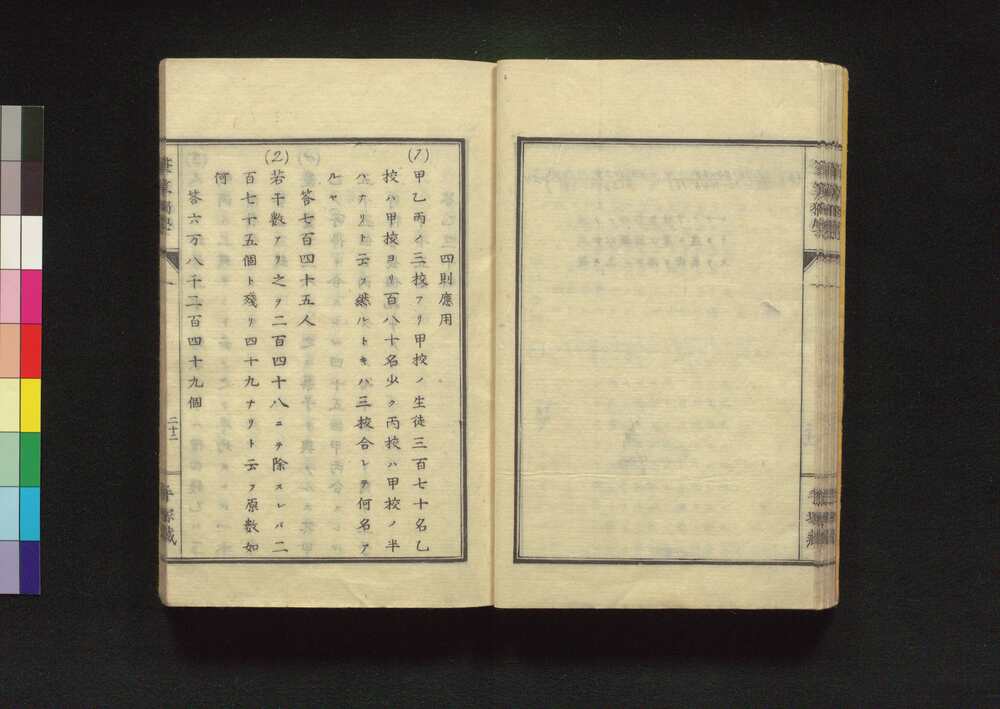 四則應用
(1) 甲乙丙ノ三校アリ甲校ノ生徒三百七十名乙
校ハ甲校ヨリ百八十名少ク丙校ハ甲校ノ半
ハナリト云フ然ルトキハ三校合シテ何名ア
ルヤ
答七百四十五人
(2) 若干數アリ之ヲ二百四十八ニテ除スレバ二
百七十五個ト殘リ四十九ナリト云フ原數如
何
答六万八千二百四十九個
二十二